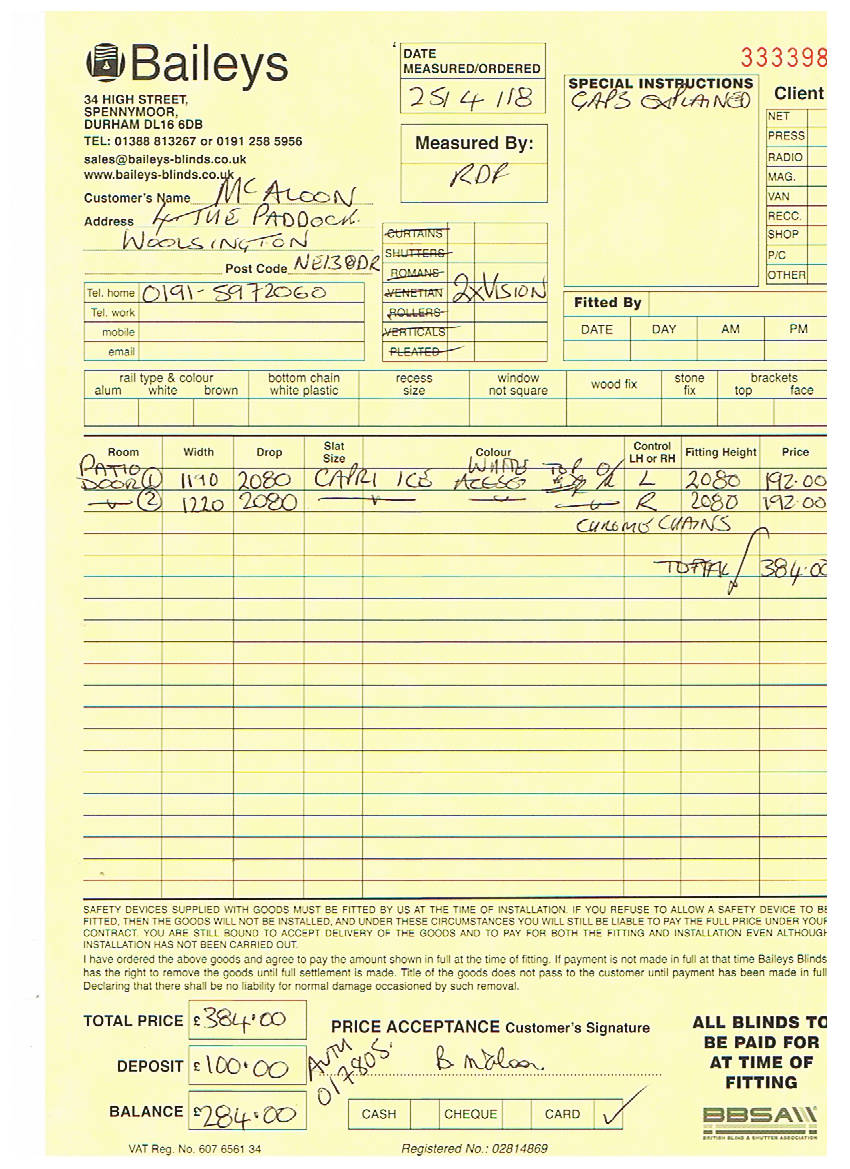 Baileys
34 HIGH STREET,
SPENNYMOOR,
DURHAM DL16 6DB
TEL: 01388 813267 or 0191 258 5956
sales@baileys-blinds.co.uk
www.baileys-blinds.co.uk
Customer's Name MCALOON
Address 4 THE PADDOCK
WOOLSINGTON
Post Code NE13 8DR
Tel. home 0191-5972060
Tel. work
mobile
email
DATE
MEASURED/ORDERED
25/4/18
Measured By:
RDF
CURTAINS
SHUTTERS
ROMANS
VENETIAN 2xVISION
ROLLERS
VERTICALS
PLEATED
333398
SPECIAL INSTRUCTIONS
GAPS EXPLAINED
Client
NET
PRESS
RADIO
MAG.
VAN
RECC.
SHOP
P/C
OTHER
Fitted By
DATE DAY AM PM
rail type & colour bottom chain recess window wood fix stone brackets
alum white brown white plastic size not square fix top face
Room Width Drop Slat Size Colour Control LH or RH Fitting Height Price
PATIO DOOR 1 1190 2080 CAPRI ICE WHITE TOP O/R L 2080 192.00
2 1220 2080 R 2080 192.00
CHROME CHAINS
TOTAL 384.00
SAFETY DEVICES SUPPLIED WITH GOODS MUST BE FITTED BY US AT THE TIME OF INSTALLATION. IF YOU REFUSE TO ALLOW A SAFETY DEVICE TO BE
FITTED, THEN THE GOODS WILL NOT BE INSTALLED, AND UNDER THESE CIRCUMSTANCES YOU WILL STILL BE LIABLE TO PAY THE FULL PRICE UNDER YOUR
CONTRACT. YOU ARE STILL BOUND TO ACCEPT DELIVERY OF THE GOODS AND TO PAY FOR BOTH THE FITTING AND INSTALLATION EVEN ALTHOUGH
INSTALLATION HAS NOT BEEN CARRIED OUT.
I have ordered the above goods and agree to pay the amount shown in full at the time of fitting. If payment is not made in full at that time Baileys Blinds
has the right to remove the goods until full settlement is made. Title of the goods does not pass to the customer until payment has been made in full
Declaring that there shall be no liability for normal damage occasioned by such removal.
TOTAL PRICE £384.00
DEPOSIT £100.00
BALANCE £284.00
PRICE ACCEPTANCE Customer's Signature
AUTH
017805.
B McAloon
CASH CHEQUE CARD ✓
ALL BLINDS TO
BE PAID FOR
AT TIME OF
FITTING
BBSA
BRITISH BLIND & SHUTTER ASSOCIATION
VAT Reg. No. 607 6561 34
Registered No.: 02814869